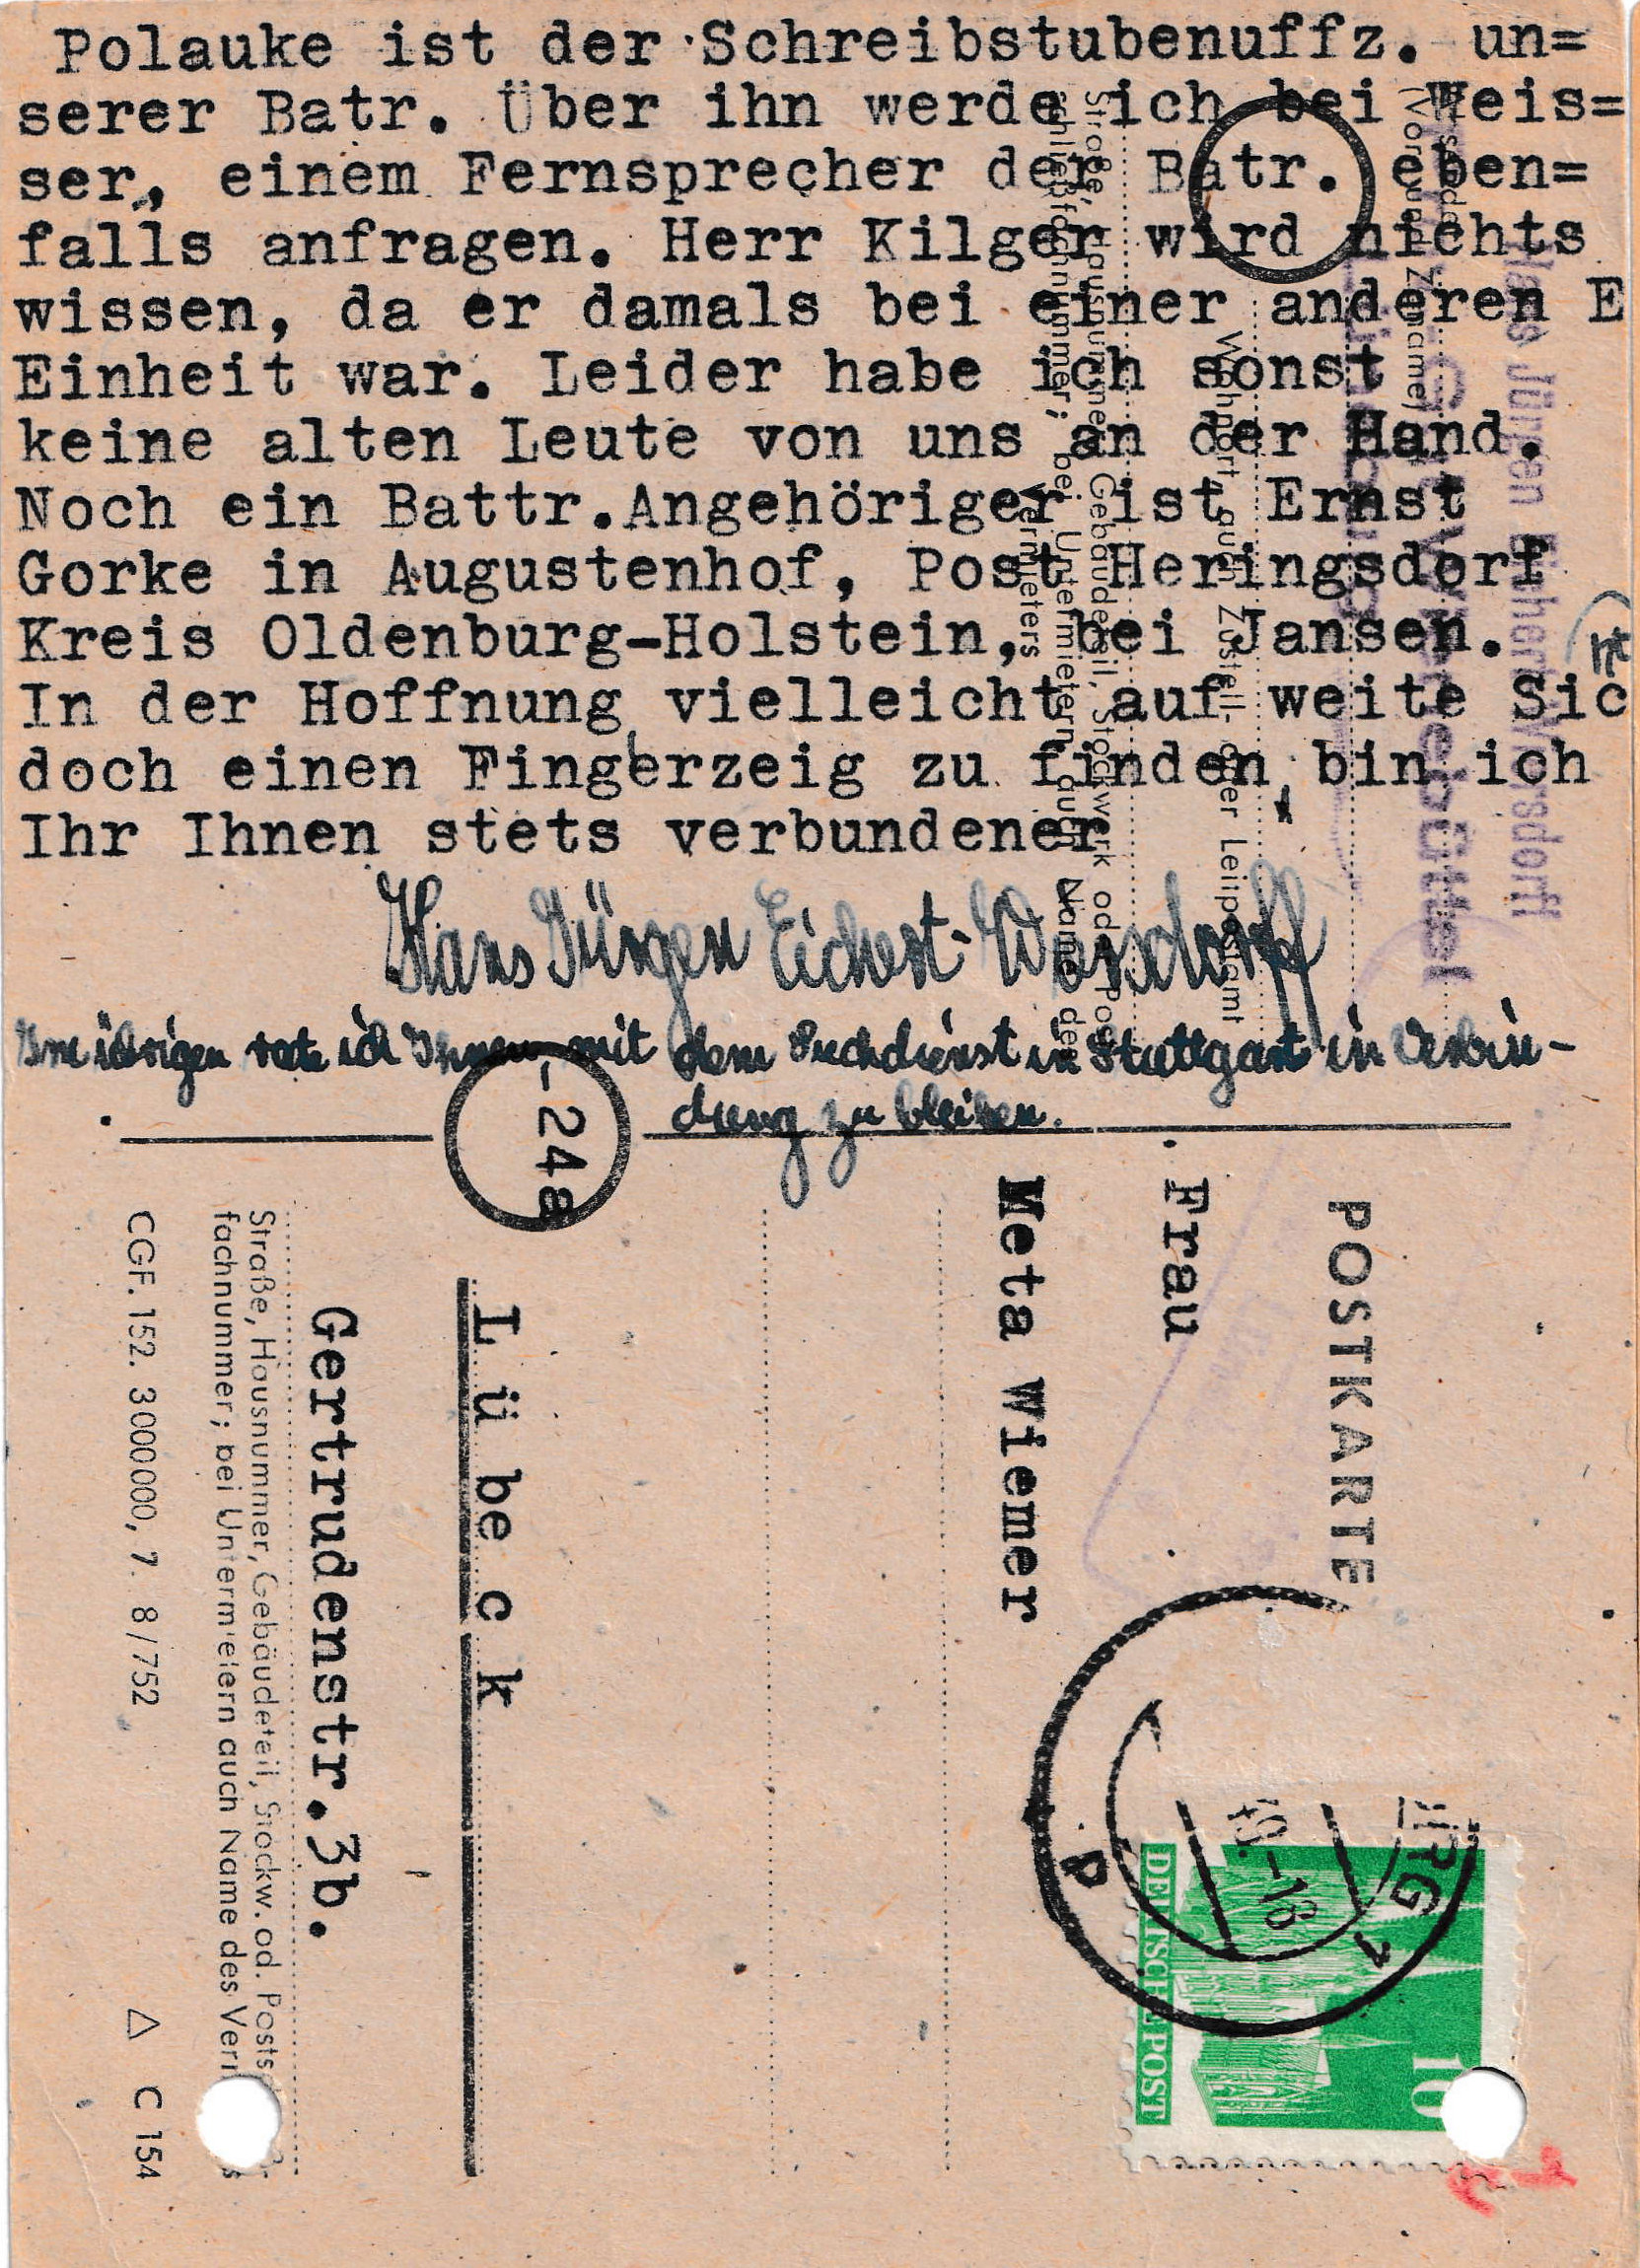 Polauke ist der Schreibstubenuffz. un=
serer Batr. Über ihn werde ich bei Weis=
ser, einem Fernsprecher der Batr. eben=
falls anfragen. Herr Kilger wird nichts
wissen, da er damals bei einer anderen E
Einheit war. Leider habe ich sonst
keine alten Leute von uns an der Hand.
Noch ein Battr.Angehöriger ist Ernst
Gorke in Augustenhof, Post Heringsdorf
Kreis Oldenburg-Holstein, bei Jansen.
In der Hoffnung vielleicht auf weite Sic
ht
doch einen Fingerzeig zu finden bin ich
Ihr Ihnen stets verbundener
Hans Jürgen Eichert-Wiersdorff
Im übrigen rate ich Ihnen mit dem Suchdienst in Stuttgart in Verbin-
dung zu bleiben.
Hans Jürgen Eichert-Wiersdorff
Absender
(Vor- und Zuname)
Wohnort, auch Zustell- oder Leitpostamt
Straße, Hausnummer, Gebäudeteil, Stockwerk od. Post-
schließfachnummer; bei Untermietern auch Name des
Vermieters
POSTKARTE
Frau
Meta Wiemer
-24a
Lübeck
Gertrudenstr.3b.
Straße, Hausnummer, Gebäudeteil, Stockw. od. Posts
fachnummer; bei Untermietern auch Name des Verm
CGF. 152. 3000000, 7. 8/752
△ C 154
DEUTSCHE POST
10
URG
-18
P